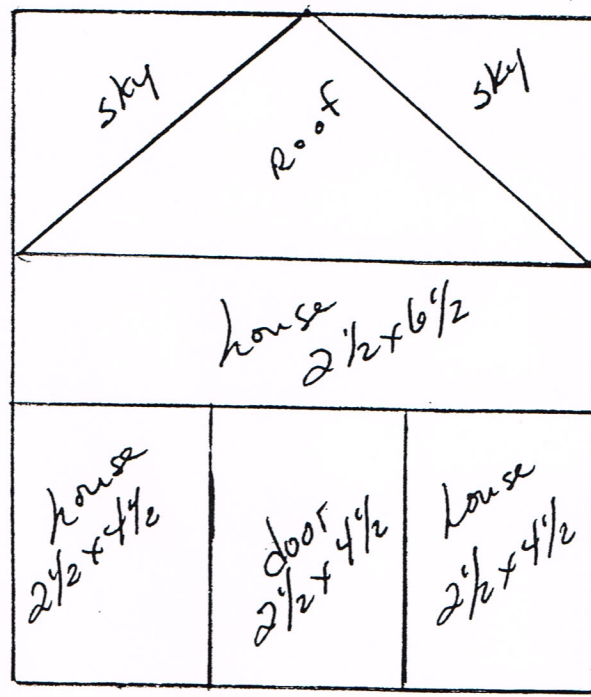 sky
Roof
sky
house
2 1/2 x 6 1/2
house
2 1/2 x 4 1/2
door
2 1/2 x 4 1/2
house
2 1/2 x 4 1/2